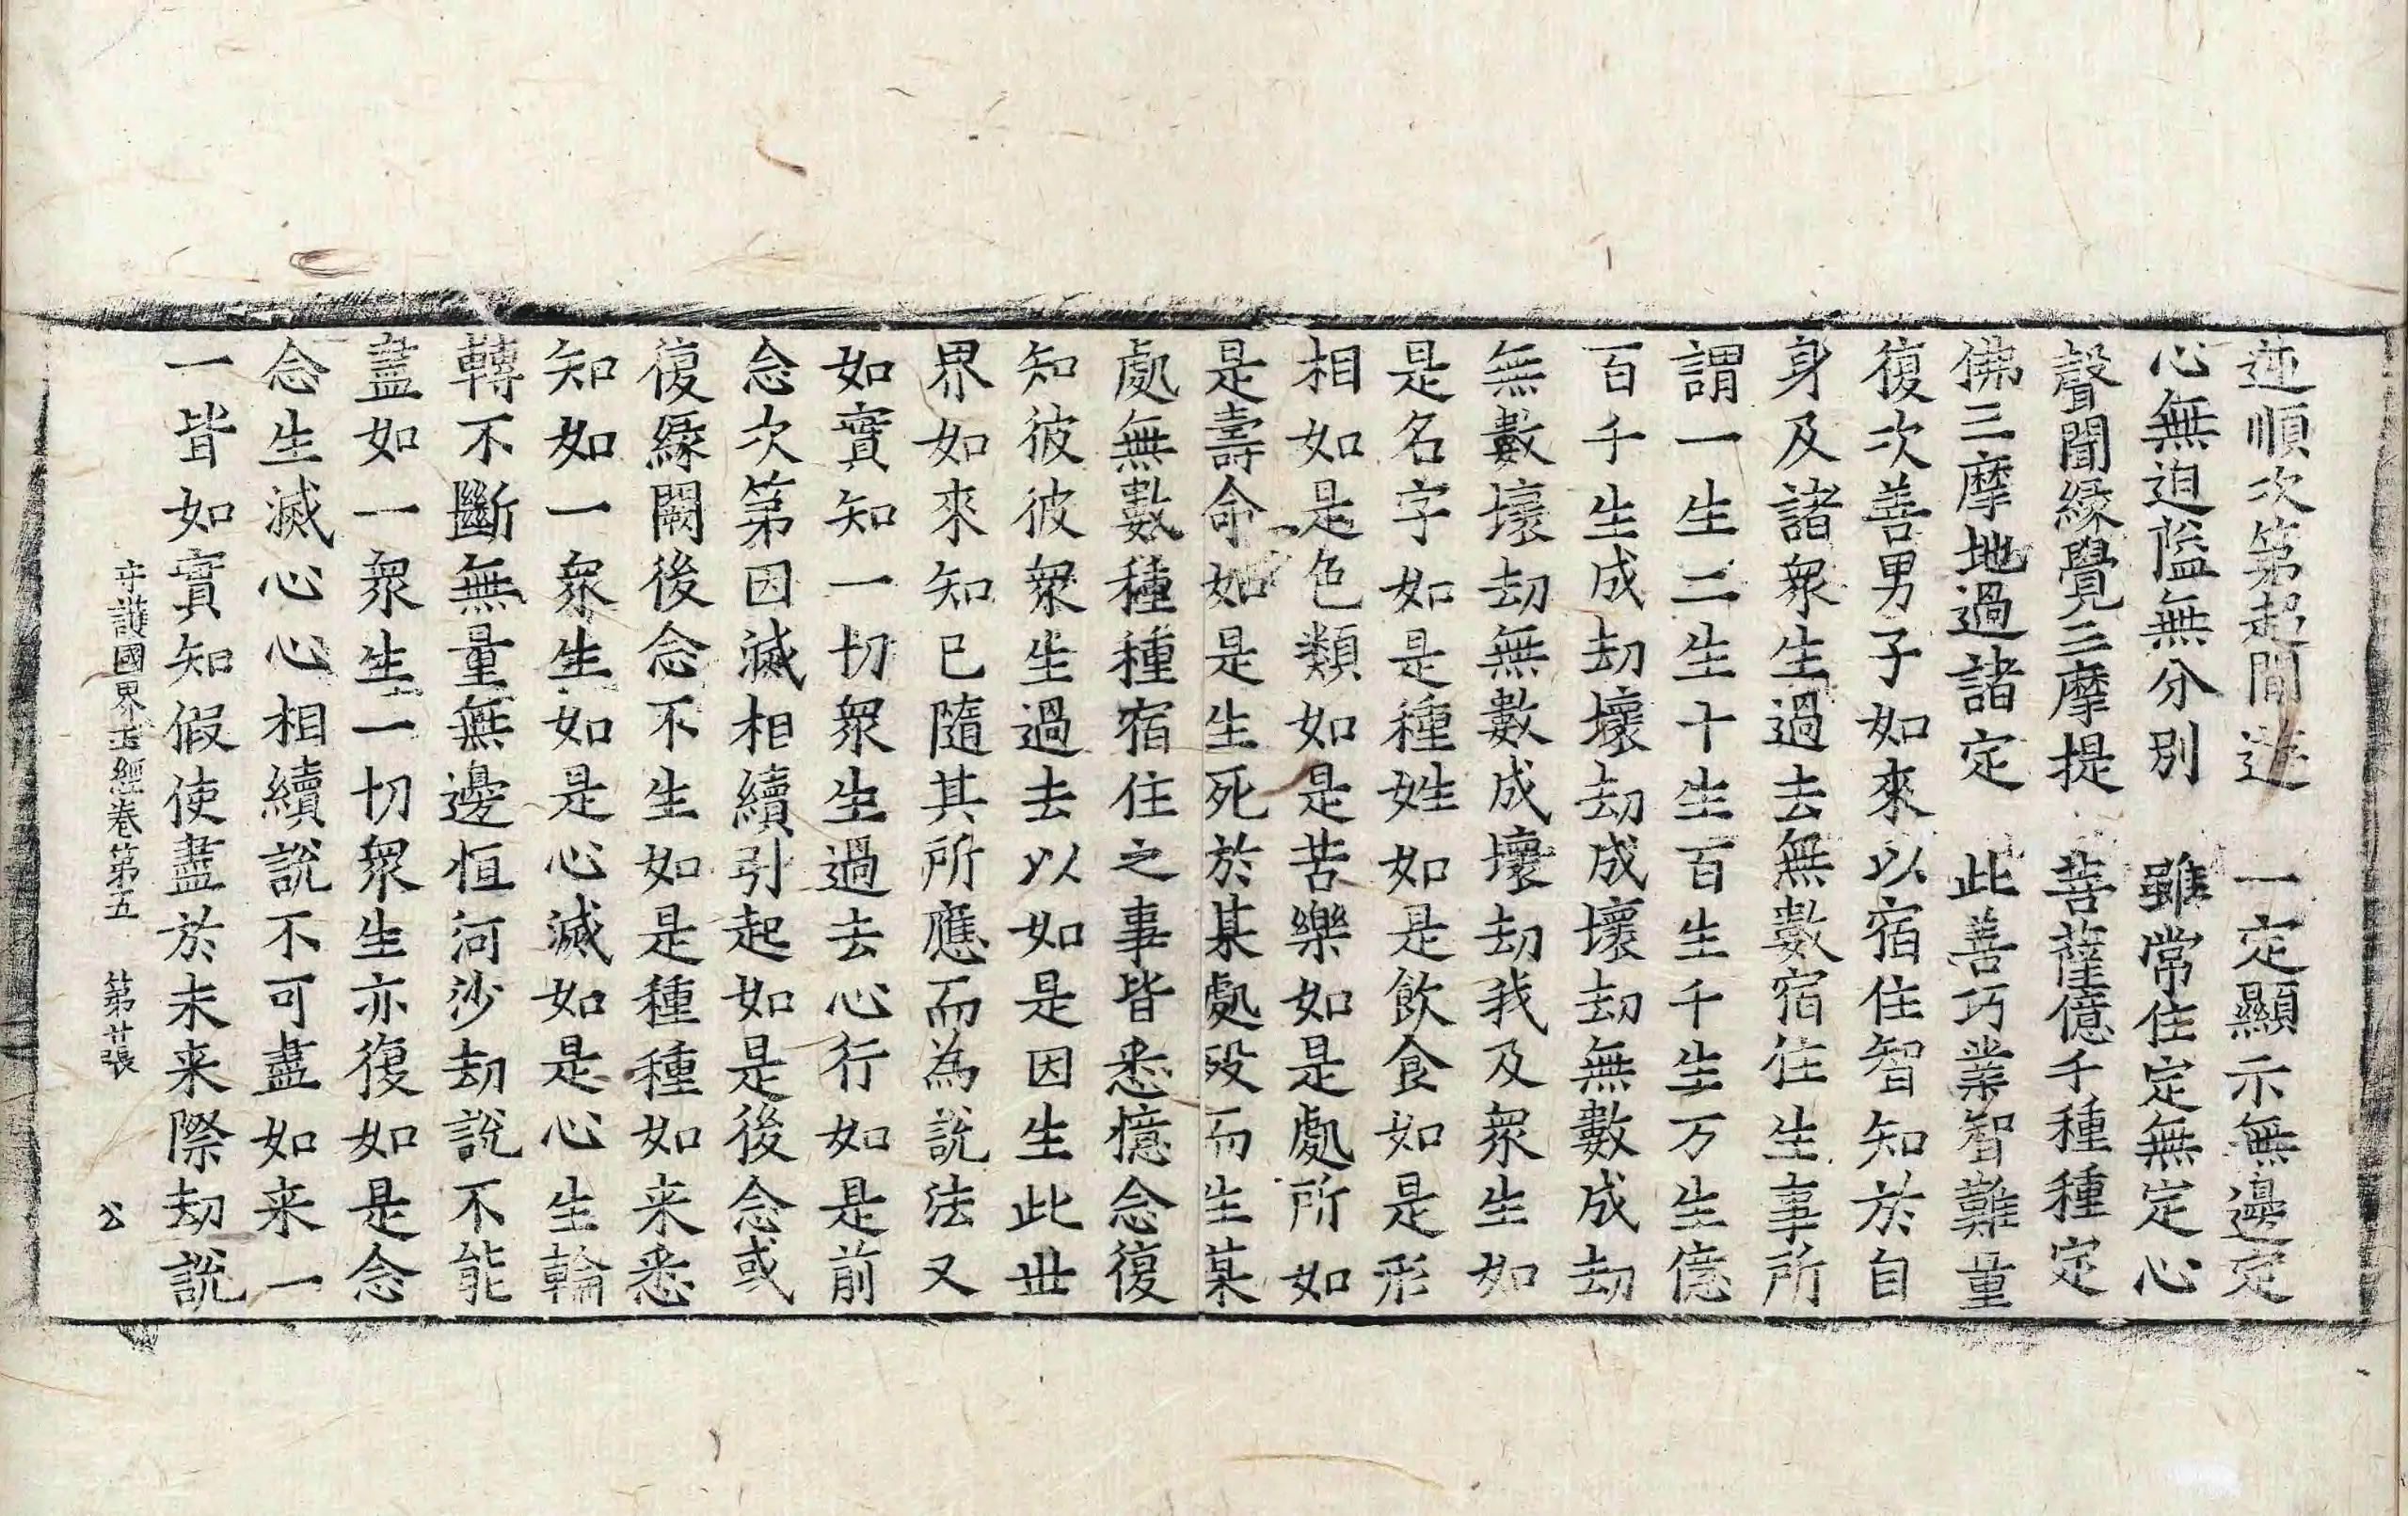 逆順次第起間迭　一定顯示無邊定
心無迫隘無分別　雖常住定無定心
聲聞緣覺三摩提　菩薩億千種種定
佛三摩地過諸定　此善巧業智難量
復次善男子如來以宿住智知於自
身及諸衆生過去無數宿住生事所
謂一生二生十生百生千生万生億
百千生成劫壞劫成壞劫無數成劫
無數壞劫無數成壞劫我及衆生如
是名字如是種姓如是飮食如是形
相如是色類如是苦樂如是處所如
是壽命如是生死於某處歿而生某
處無數種種宿住之事皆悉憶念復
知彼彼衆生過去以如是因生此世
界如來知已隨其所應而為說法又
如實知一切衆生過去心行如是前
念次第因滅相續引起如是後念或
復緣闕後念不生如是種種如来悉
知如一衆生如是心滅如是心生輪
轉不斷無量無邊恒河沙劫說不能
盡如一衆生一切衆生亦復如是念
念生滅心心相續說不可盡如来一
一皆如實知假使盡於未来際劫說
守護國界主經卷第五　第廿張　公